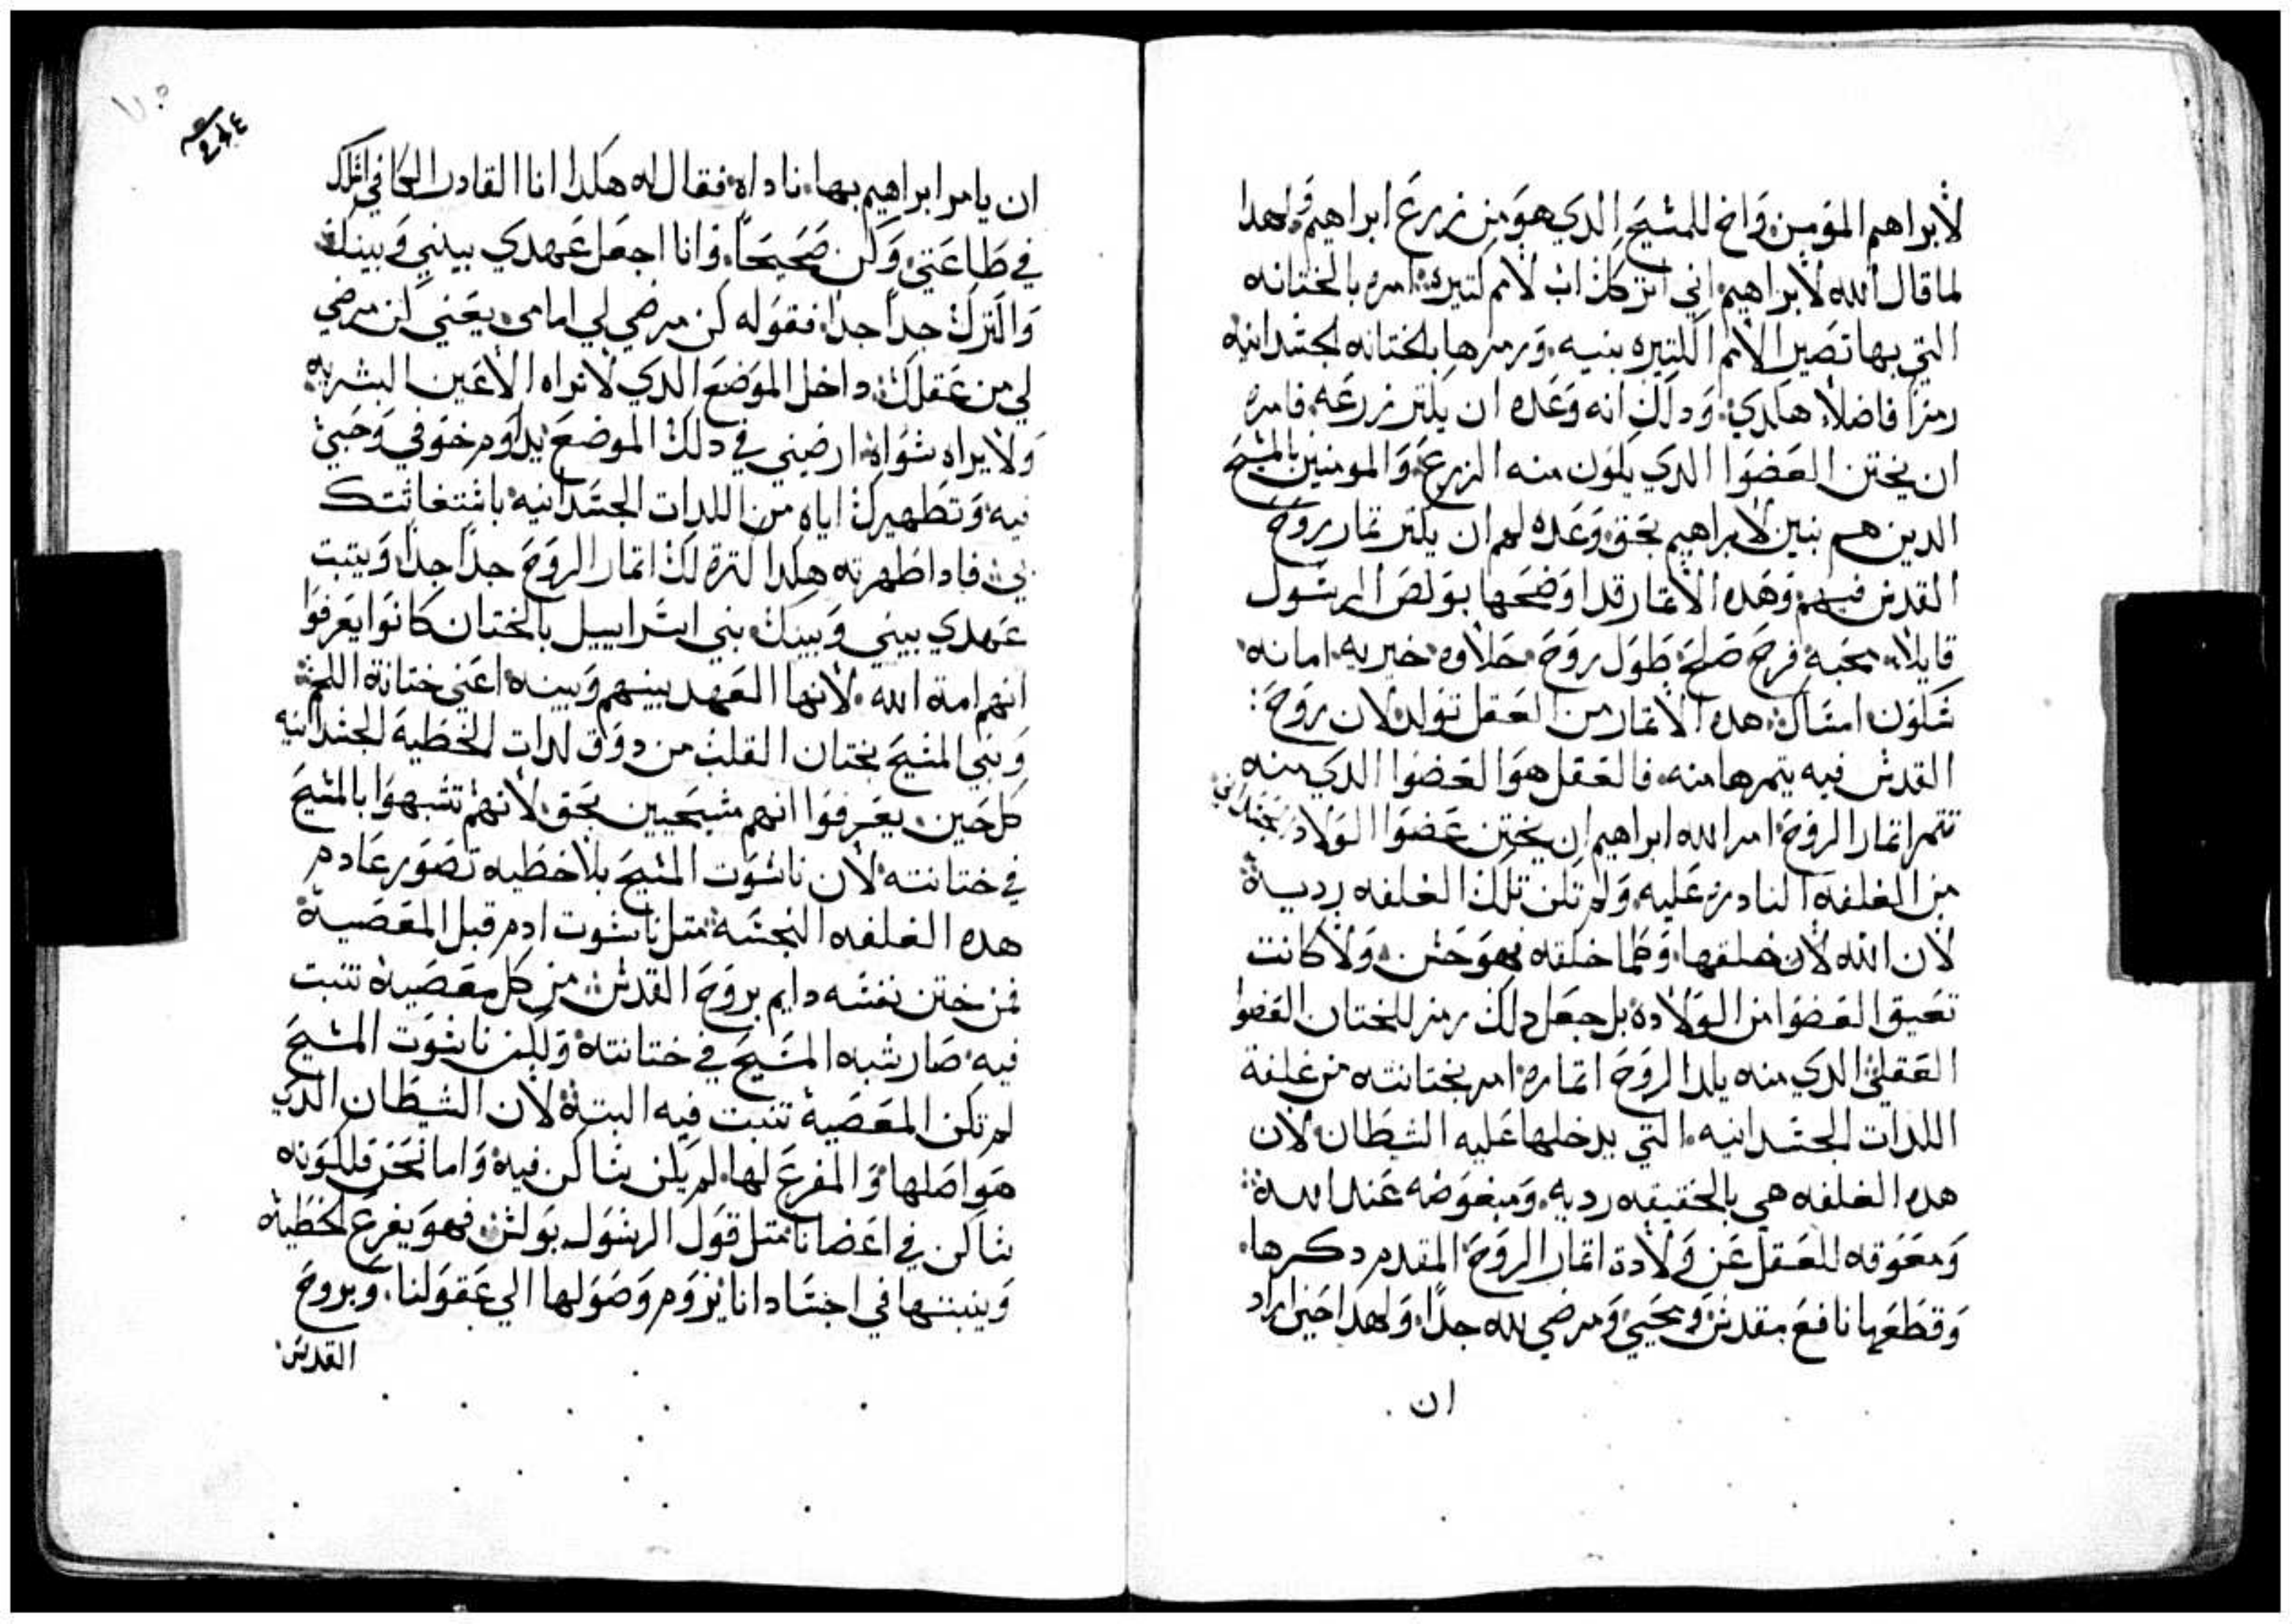 لابراهم المومن واخ للمسيح الدي هو من زرع ابراهيم ولهدا
لما قال الله لابراهيم اني اتركك اب لامم كتيره امره بالختانه
التي بها تصير الامم الكتيره بنيه ورمزها بالختانه الجسدانيه
رمزا فاضلا هكدي ودلك انه وعده ان يكتر زرعه فامره
ان يختن العضوا الدي يكون منه الزرع والمومنين بالمسيح
الدين هم بنين لابراهيم بحق وعده لهم ان يكتر تمار روح
القدس فيهم وهده الاتمار قد اوضحها بولص الرسول
قايلا محبه فرح صلح طول روح حلاوه خيريه امانه
سكون امساك هده الاتمار من العقل تولد لان روح
القدس فيه يتمرها منه فالعقل هو العضوا الدي منه
تتمر اتمار الروح امر الله ابراهيم ان يختن عضوا الولاد الجسداني
من الغلفه النادره عليه ولم تكن تلك الغلفه رديه
لان الله لان خلقها وكلما خلقه فهو حسن ولا كانت
تعيق العضوا من الولاده بل جعل دلك رمز للختان العضوا
العقلي الدي منه يلد الروح اتماره امر بختانته من غلفة
اللدات الجسدانيه التي يدخلها عليه الشطان لان
هده الغلفه هي بالحقيقه رديه ومبغوضه عند الله
ومعوقه للعقل عن ولادة اتمار الروح المقدم دكرها
وقطعها نافع مقدس ومحيي ومرضي لله جدا ولهدا حين اراد
ان
٢٤٤
ان يامر ابراهيم بها ناداه فقال له هكدا انا القادر الكافي اتكل
في طاعتي وكن صحيحا وانا اجعل عهدي بيني وبينك
واكترك جدا جدا فقوله كن مرضي لي امامي يعني كن مرضي
لي من عقلك داخل الموضع الدي لا تراه الاعين البشريه
ولا يراه سواه ارضيني في دلك الموضع يداوم خوفي وحبي
فيه وتطهيرك اياه من اللدات الجسدانيه باستغاتتك
بي فادا طهرته هكدا اكتره لك اتمار الروح جدا جدا ويتبت
عهدي بيني وبينك بني اسراييل بالختان كانوا يعرفوا
انهم امة الله لانها العهد بينهم وبينه اعني ختانة اللحم
وبني المسيح بختان القلب من دوق لدات الخطية الجسدانيه
كل حين يعرفوا انهم مسيحيين بحق لانهم تشبهوا بالمسيح
في ختانته لان ناسوت المسيح بلا خطيه تصور عادم
هده الغلفه النجسه متل ناسوت ادم قبل المعصية
فمن ختن نفسه دايم بروح القدس من كل معصية تنبت
فيه صار شبه المسيح في ختانته ولكن ناسوت المسيح
لم تكن المعصية تنبت فيه البتة لان الشيطان الدي
هو اصلها والمفرع لها لم يكن ساكن فيه واما نحن فلكونه
ساكن في اعضانا متل قول الرسول بولس فهو يفرع الخطية
وينبتها في اجسادنا يروم وصولها الي عقولنا وبروح
القدس